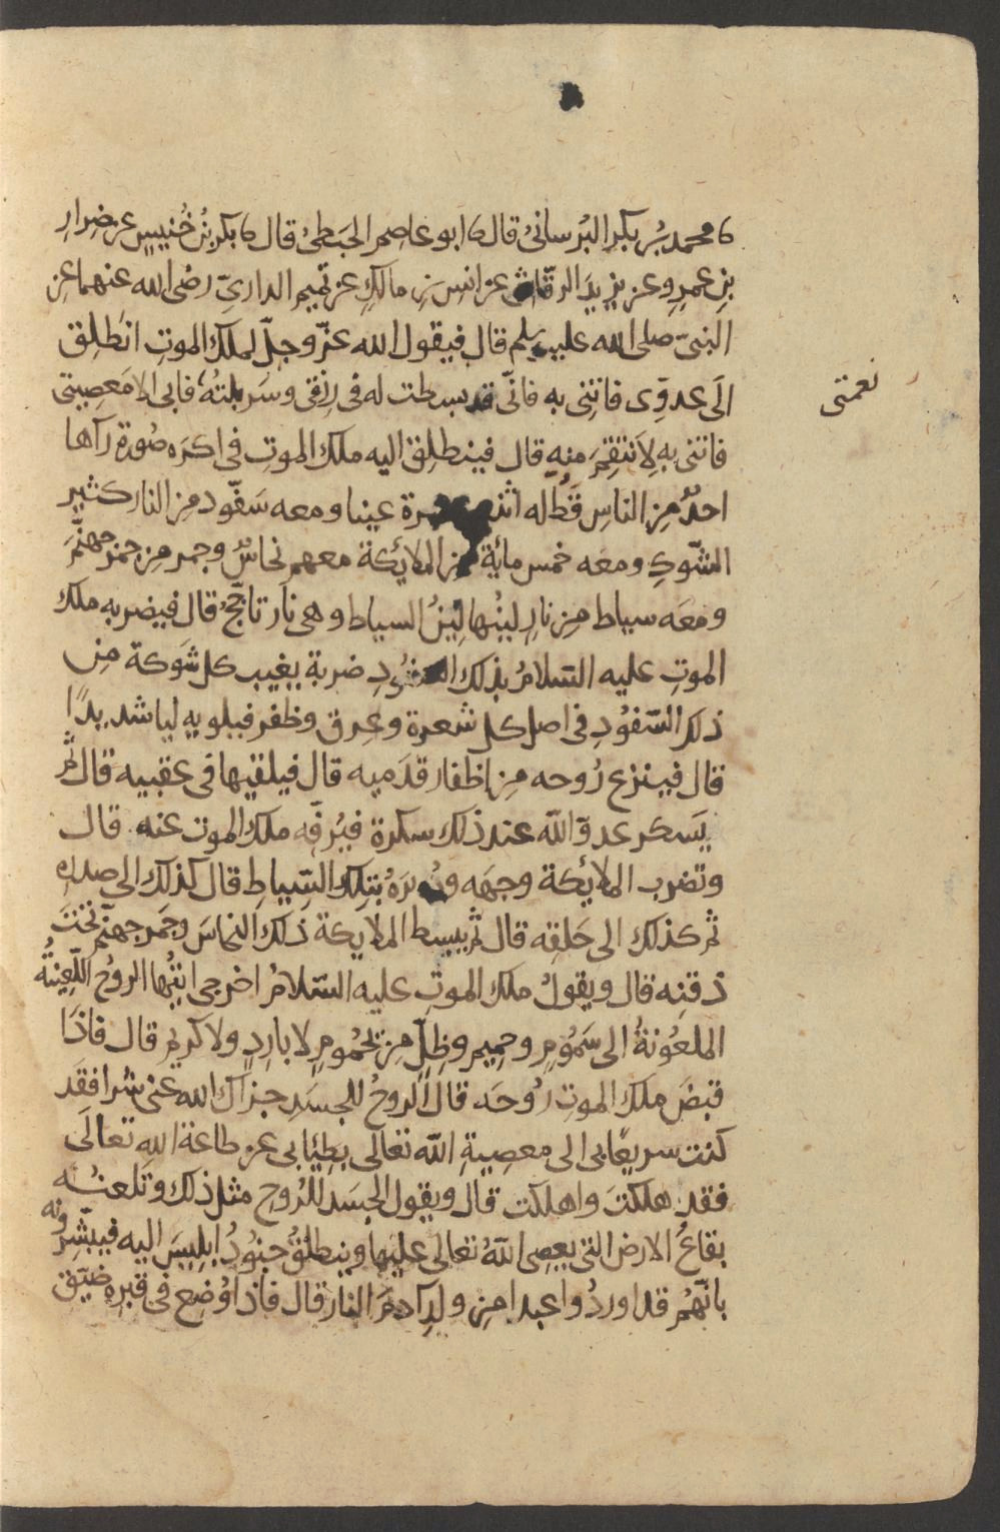 نا محمد بن بكر البُرسانىُ قال نا ابو عاصم الحَبَطىُ قال نا بكر بنُ خُنيسٍ عن ضِرارِ
بنِ عمرٍو عن يزيدَ الرقاشى عن انسِ بنِ مالكٍ عن تميم الدارىّ رضى الله عنهما عن
النبىّ صلى الله عليه وسلم قال فيقول الله عزّ وجلّ لملك الموتِ انطَلِق
الَى عدوِّى فاتِنِى به فانّى قد بسطت له فى رزقى وسَربلتُهُ فابى الا مَعصِيتى
نعمتى
فاتنى به لِاَنتقِمَ منهِ قال فينطلِق اليه ملك الموتِ فى اكرَه صُورة رآها
احدٌ مِن الناسِ قَطُ له اثنتى عشرة عينا ومعه سَفّود مِن النار كثير
الشّوكِ ومعه خمس مائة من الملائكة معهم نحاسٌ وجمر مِن جمرِ جهنَّمَ
ومعَه سياط مِن نارٍ لينُها لِينُ السياط وهى نار تاجَّجُ قال فيضربه ملك
الموتِ عليه السّلامُ بذلك السفُودِ ضربة يغيب كل شوكة مِن
ذلك السّفوُدِ فى اصل كل شعرة وعِرق وظفر فيلويه ليا شديدًا
قال فينزع رُوحه مِن اظفار قدَميه قال فيلقيها فى عقبيه قال ثُم
يَسكر عدوّ الله عند ذلك سكرة فيُرفّه ملك الموت عنه قال
وتضرب الملائكة وجهَه ودُبرَهُ بتلك السّياطِ قال كذلك الى صدره
ثم كذلك الى حَلقِه قال ثم يبسط الملايكة ذلك النحاسَ وجَمر جهنّم تحتَ
ذقنِه قال ويقولُ ملك الموتِ عليه السّلامُ اخرجى ايتُها الروُح اللّعِينةُ
الملعُونةُ الى سَمُومٍ وحمِيمٍ وظِلٍّ مِن يَحْمُومٍ لا بارِدٍ ولا كريم قال فاذَا
قبضَ ملَك الموتِ رُوحَه قال الروحُ للجسَدِ جزاك الله عنى شرا فقَد
كنت سريعًا بى الى معصِيةِ اللّه تعالَى بطِيًا بى عن طاعة الله تعالَى
فقد هلكتَ واهلكت قال ويقول الجسَد للرُوح مثل ذلك وتَلعنُه
بقاعُ الارض التى يعصِى اللّهُ تعالى عليها وينطلقُ جنوُدُ اِبلِيسَ اليه فيبشّرونه
بانّهُم قد اوردُوا عبدا مِن ولدِ آدمَ النار قال فاذا وُضِع فى قبرِهِ ضيّق